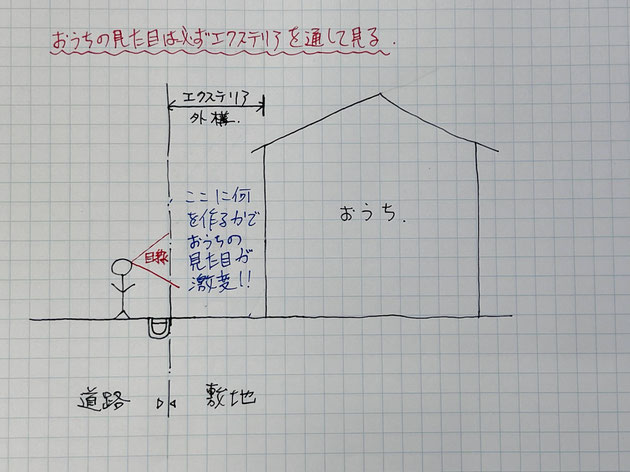 おうちの見た目は必ずエクステリアを通して見る.
エクステリア
外構.
ここに何
を作るかで
おうちの
見た目が
激変!!
目線
おうち.
道路
敷地